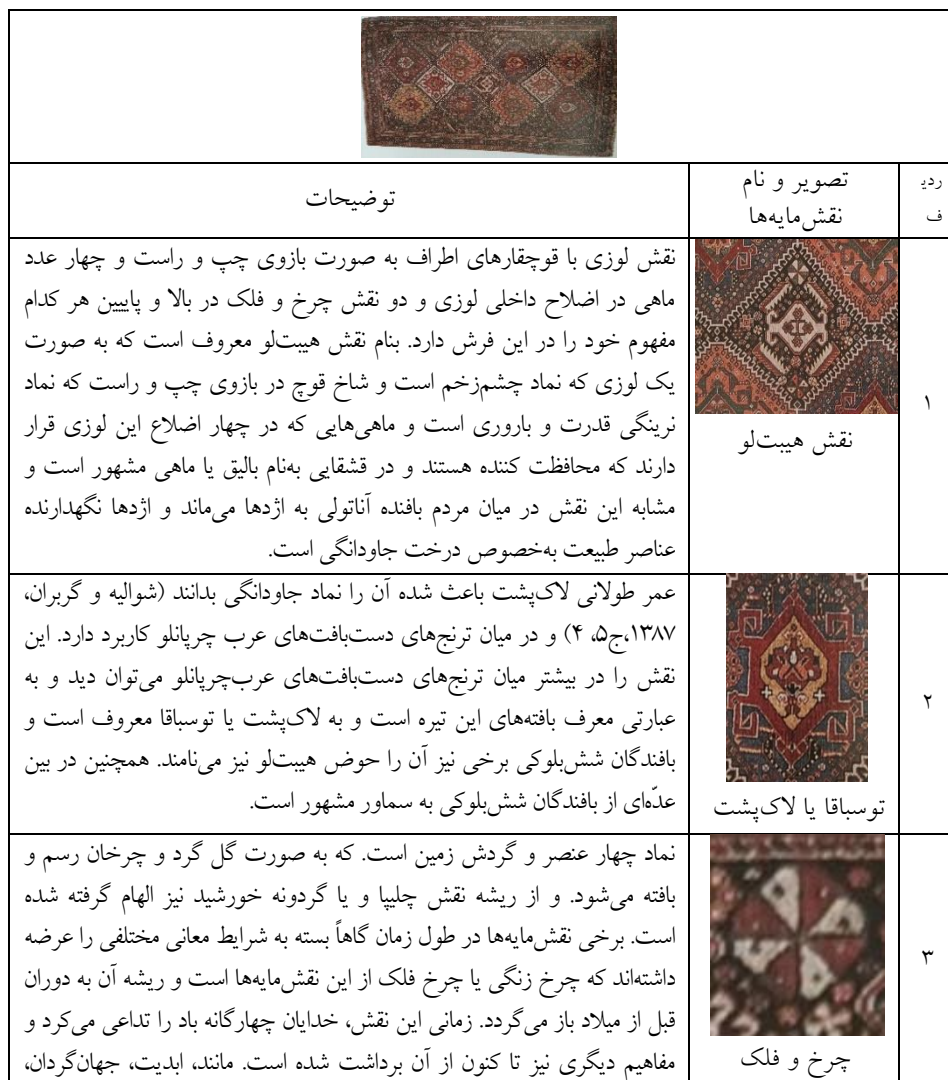 ردیف
تصویر و نام نقش‌مایه‌ها
توضیحات
۱
نقش هیبت‌لو
نقش لوزی با قوچقارهای اطراف به صورت بازوی چپ و راست و چهار عدد
ماهی در اضلاح داخلی لوزی و دو نقش چرخ و فلک در بالا و پایین هر کدام
مفهوم خود را در این فرش دارد. بنام نقش هیبت‌لو معروف است که به صورت
یک لوزی که نماد چشم‌زخم است و شاخ قوچ در بازوی چپ و راست که نماد
نرینگی قدرت و باروری است و ماهی‌هایی که در چهار اضلاع این لوزی قرار
دارند که محافظت کننده هستند و در قشقایی به‌نام بالیق یا ماهی مشهور است و
مشابه این نقش در میان مردم بافنده آناتولی به اژدها می‌ماند و اژدها نگهدارنده
عناصر طبیعت به‌خصوص درخت جاودانگی است.
۲
توسباقا یا لاک‌پشت
عمر طولانی لاک‌پشت باعث شده آن را نماد جاودانگی بدانند (شوالیه و گربران،
۱۳۸۷،ج۵، ۴) و در میان ترنج‌های دست‌بافت‌های عرب چرپانلو کاربرد دارد. این
نقش را در بیشتر میان ترنج‌های دست‌بافت‌های عرب‌چرپانلو می‌توان دید و به
عبارتی معرف بافته‌های این تیره است و به لاک‌پشت یا توسباقا معروف است و
بافندگان شش‌بلوکی برخی نیز آن را حوض هیبت‌لو نیز می‌نامند. همچنین در بین
عدّه‌ای از بافندگان شش‌بلوکی به سماور مشهور است.
۳
چرخ و فلک
نماد چهار عنصر و گردش زمین است. که به صورت گل گرد و چرخان رسم و
بافته می‌شود. و از ریشه نقش چلیپا و یا گردونه خورشید نیز الهام گرفته شده
است. برخی نقش‌مایه‌ها در طول زمان گاهاً بسته به شرایط معانی مختلفی را عرضه
داشته‌اند که چرخ زنگی یا چرخ فلک از این نقش‌مایه‌ها است و ریشه آن به دوران
قبل از میلاد باز می‌گردد. زمانی این نقش، خدایان چهارگانه باد را تداعی می‌کرد و
مفاهیم دیگری نیز تا کنون از آن برداشت شده است. مانند، ابدیت، جهان‌گردان،